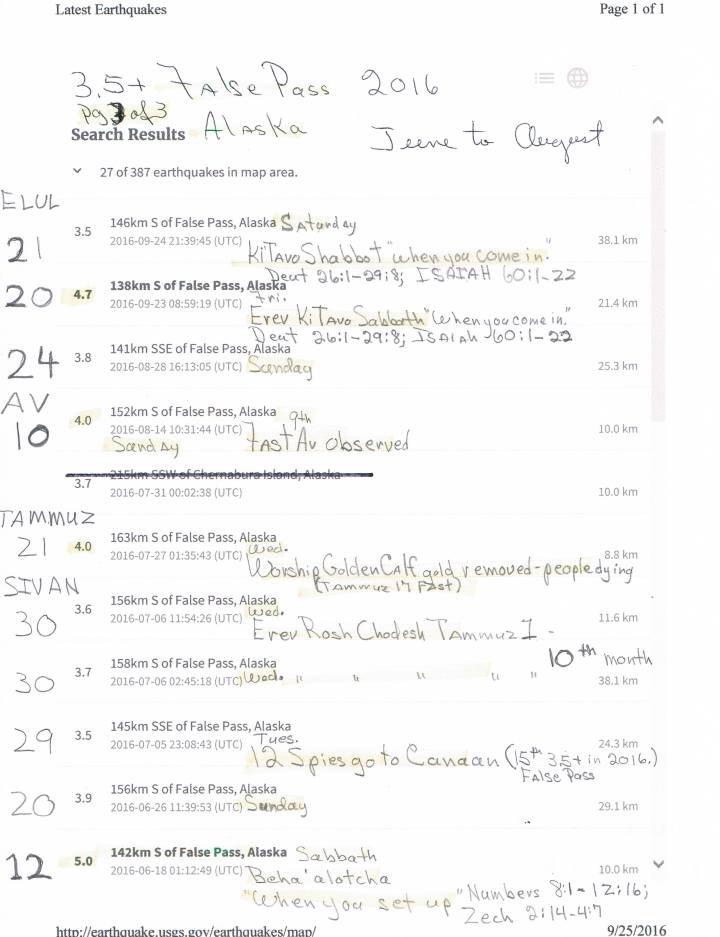 Latest Earthquakes Page 1 of 1
3.5+ False Pass 2016
pg 3 of 3
Search Results Alaska June to August
27 of 387 earthquakes in map area.
ELUL
21 3.5 146km S of False Pass, Alaska Saturday
2016-09-24 21:39:45 (UTC) 38.1 km
KiTavo Shabbot "when you come in."
Deut 26:1-29:8; ISAIAH 60:1-22
20 4.7 138km S of False Pass, Alaska
2016-09-23 08:59:19 (UTC) Fri. 21.4 km
Erev KiTavo Sabbath "When you come in."
Deut 26:1-29:8; ISAIAH 60:1-22
24 3.8 141km SSE of False Pass, Alaska
2016-08-28 16:13:05 (UTC) Sunday 25.3 km
AV
10 4.0 152km S of False Pass, Alaska
2016-08-14 10:31:44 (UTC) 9th 10.0 km
Sunday Fast Av observed
3.7 215km SSW of Chernabura Island, Alaska
2016-07-31 00:02:38 (UTC) 10.0 km
TAMMUZ
21 4.0 163km S of False Pass, Alaska
2016-07-27 01:35:43 (UTC) Wed. 8.8 km
Worship Golden Calf gold removed-people dying
(Tammuz 17 Fast)
SIVAN
30 3.6 156km S of False Pass, Alaska
2016-07-06 11:54:26 (UTC) Wed. 11.6 km
Erev Rosh Chodesh Tammuz I -
10th month
30 3.7 158km S of False Pass, Alaska
2016-07-06 02:45:18 (UTC) Wed. " " " " " 38.1 km
29 3.5 145km SSE of False Pass, Alaska
2016-07-05 23:08:43 (UTC) Tues. 24.3 km
12 Spies go to Canaan (15th 3.5+ in 2016.)
False Pass
20 3.9 156km S of False Pass, Alaska
2016-06-26 11:39:53 (UTC) Sunday 29.1 km
12 5.0 142km S of False Pass, Alaska Sabbath
2016-06-18 01:12:49 (UTC) Beha'alotcha 10.0 km
"When you set up" Numbers 8:1-12:16;
Zech 2:14-4:7
http://earthquake.usgs.gov/earthquakes/map/ 9/25/2016